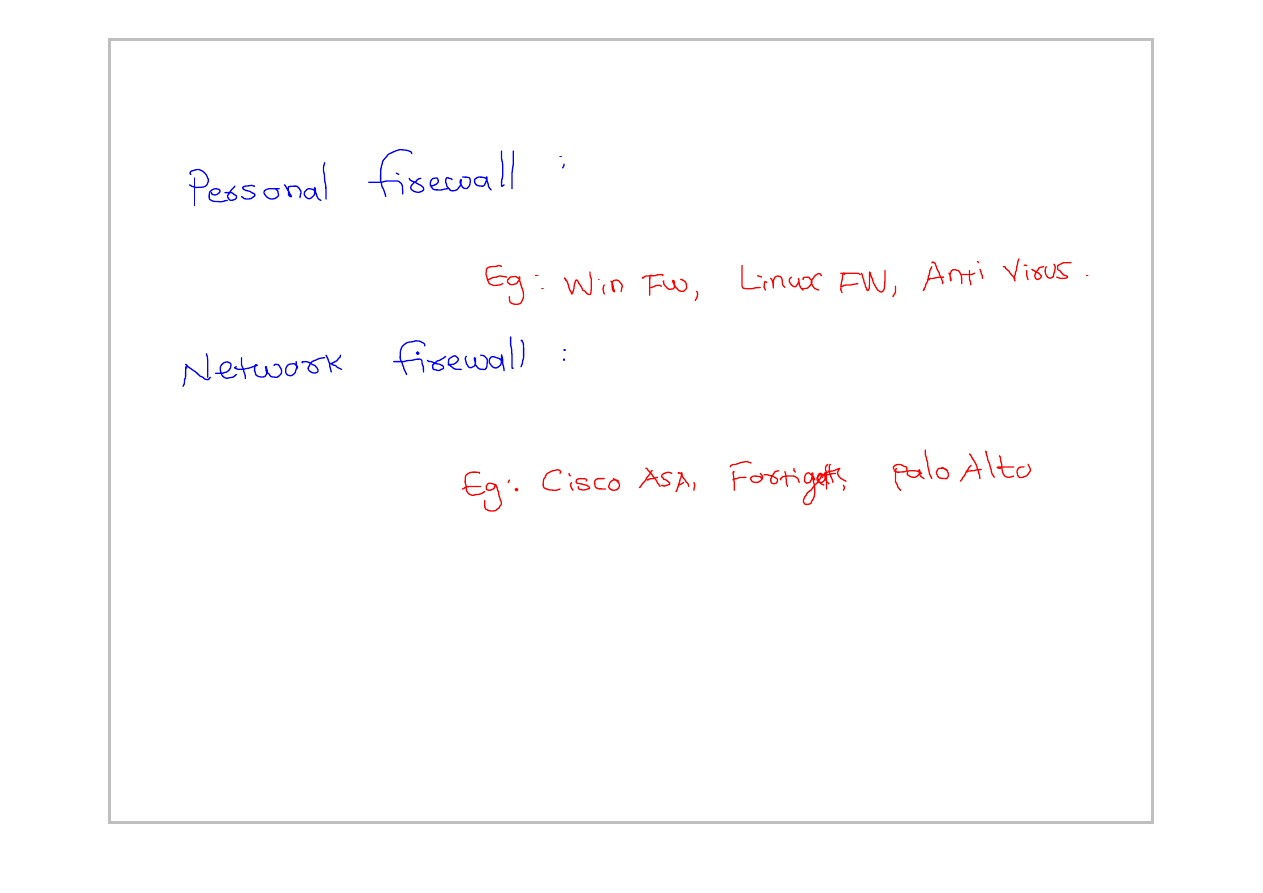 Personal firewall :
Eg: Win FW, Linux FW, Anti Virus.
Network firewall :
Eg: Cisco ASA, Fortigate, palo Alto